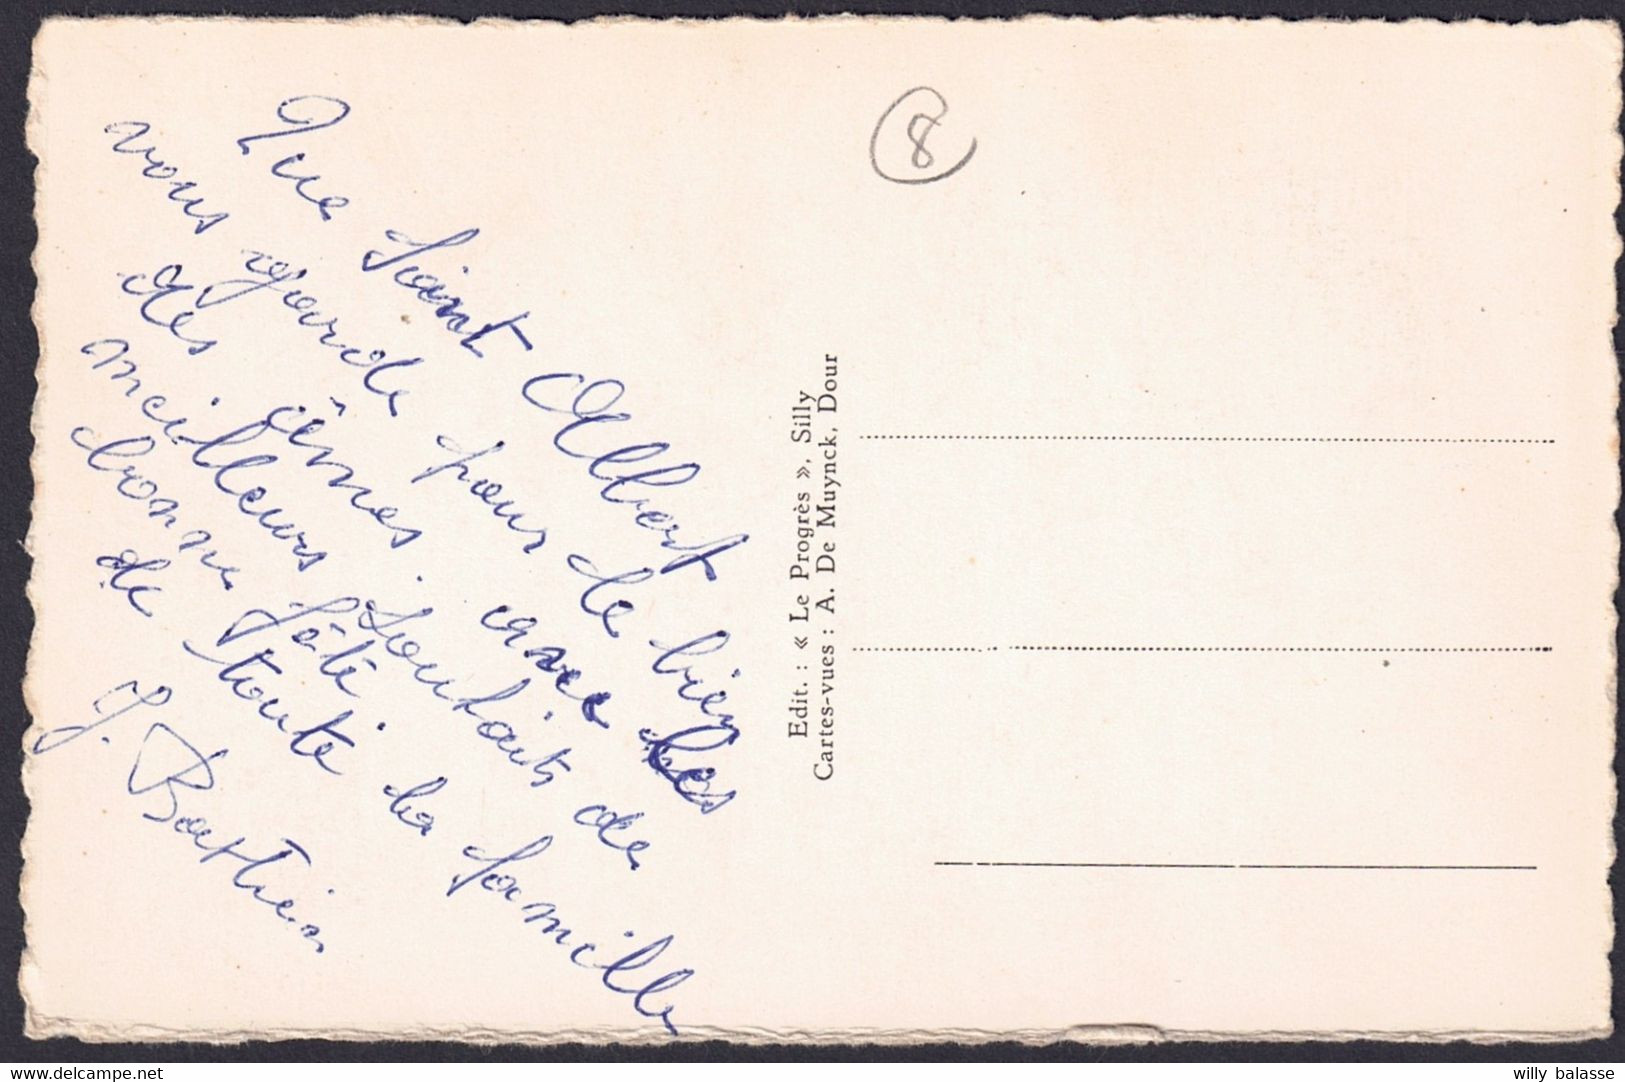 Que Saint Albert
vous garde pour le bien
des âmes avec les
meilleurs souhaits de
bonne fête
de toute la famille
J. Bastien
8
Edit. : « Le Progrès », Silly
Cartes-vues : A. De Muynck, Dour
delcampe.net
willy balasse